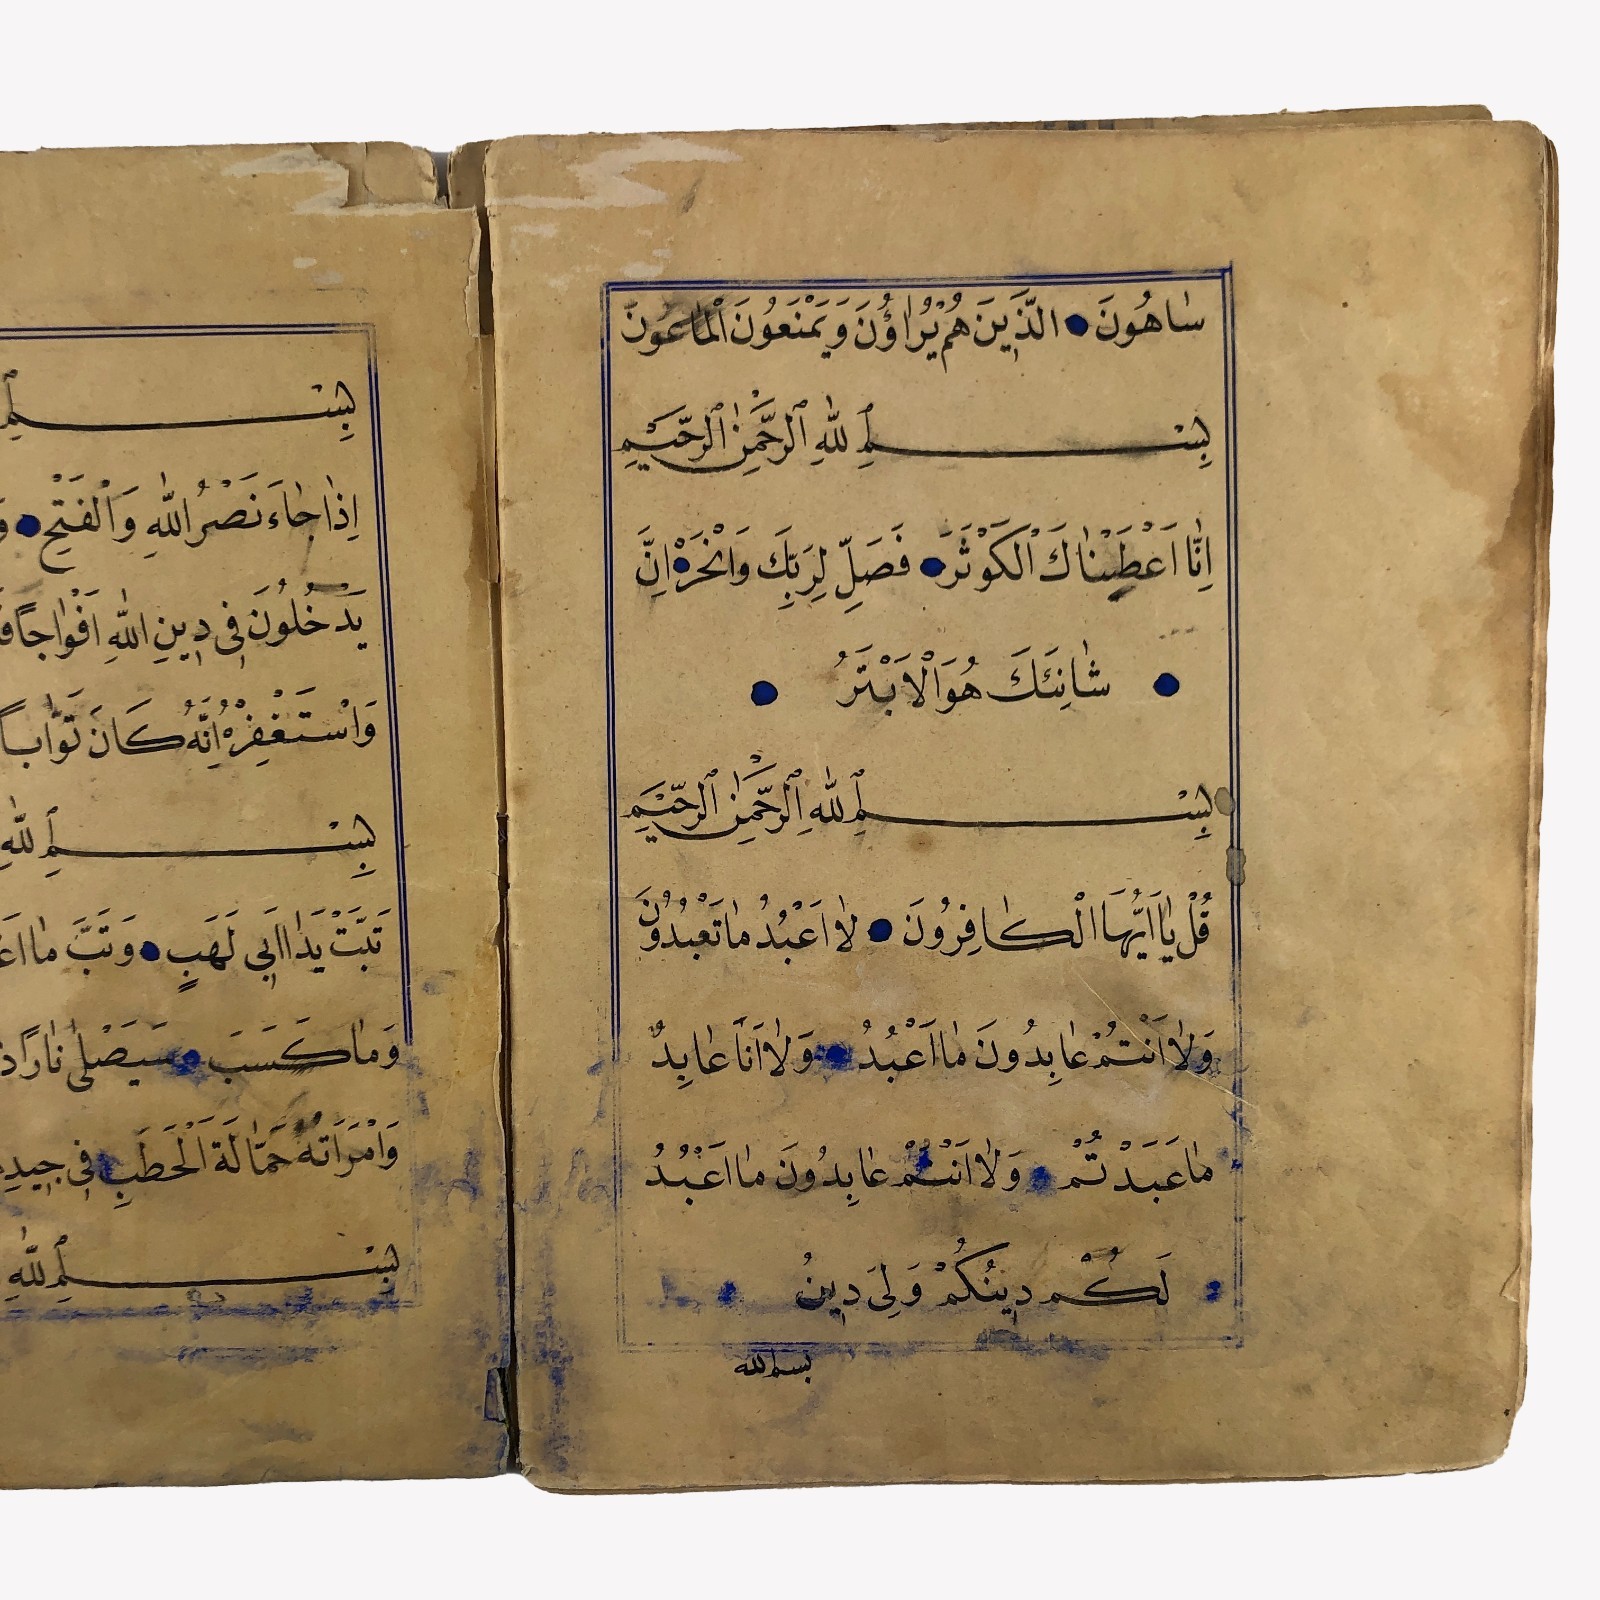 سَاهُونَ ● الَّذِينَ هُمْ يُرَاؤُنَ وَيَمْنَعُونَ الْمَاعُونَ
بِسْمِ اللّٰهِ الرَّحْمٰنِ الرَّحِيمِ
اِنَّا اَعْطَيْنَاكَ الْكَوْثَرَ ● فَصَلِّ لِرَبِّكَ وَانْحَرْ ● اِنَّ
● شَانِئَكَ هُوَ الْاَبْتَرُ ●
بِسْمِ اللّٰهِ الرَّحْمٰنِ الرَّحِيمِ
قُلْ يَا اَيُّهَا الْكَافِرُونَ ● لَا اَعْبُدُ مَا تَعْبُدُونَ
وَلَا اَنْتُمْ عَابِدُونَ مَا اَعْبُدُ ● وَلَا اَنَا عَابِدٌ
مَا عَبَدْتُمْ ● وَلَا اَنْتُمْ عَابِدُونَ مَا اَعْبُدُ
● لَكُمْ دِينُكُمْ وَلِيَ دِينُ ●
بسم الله
بِسْمِ
اِذَا جَاءَ نَصْرُ اللّٰهِ وَالْفَتْحُ ●
يَدْخُلُونَ فِي دِينِ اللّٰهِ اَفْوَاجًا
وَاسْتَغْفِرْهُ اِنَّهُ كَانَ تَوَّابًا
بِسْمِ اللّٰهِ
تَبَّتْ يَدَا اَبِي لَهَبٍ ● وَتَبَّ مَا
وَمَا كَسَبَ ● سَيَصْلٰى نَارًا
وَامْرَاَتُهُ حَمَّالَةَ الْحَطَبِ فِي جِيدِ
بِسْمِ اللّٰهِ